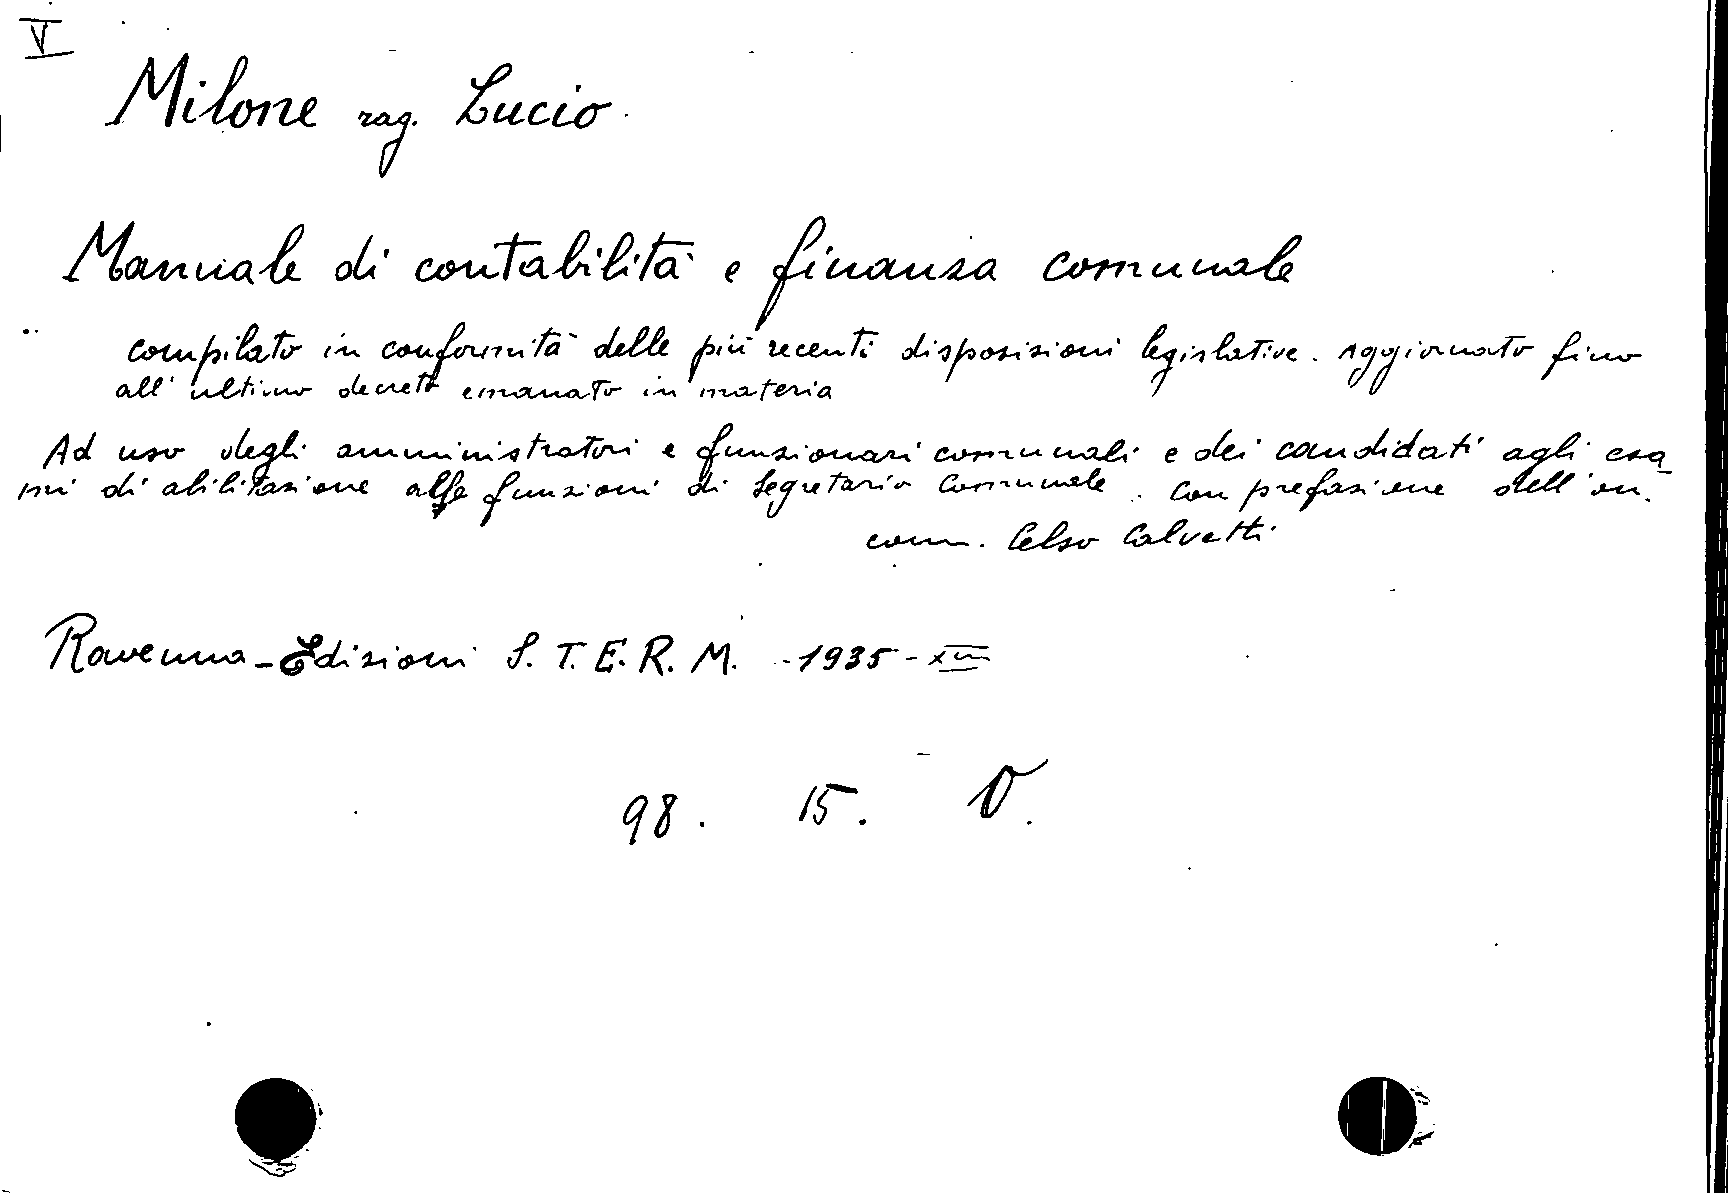 V
Milone rag. Lucio
Manuale di contabilità e finanza comunale
compilato in conformità delle più recenti disposizioni legislative. Aggiornato fino
all'ultimo decreto emanato in materia
Ad uso degli amministratori e funzionari comunali e dei candidati agli esa
mi di abilitazione alle funzioni di Segretario Comunale. Con prefazione dell'on.
comm. Celso Calvetti
Ravenna - Edizioni S. T. E. R. M. - 1935 - XIII
98. 15. V.